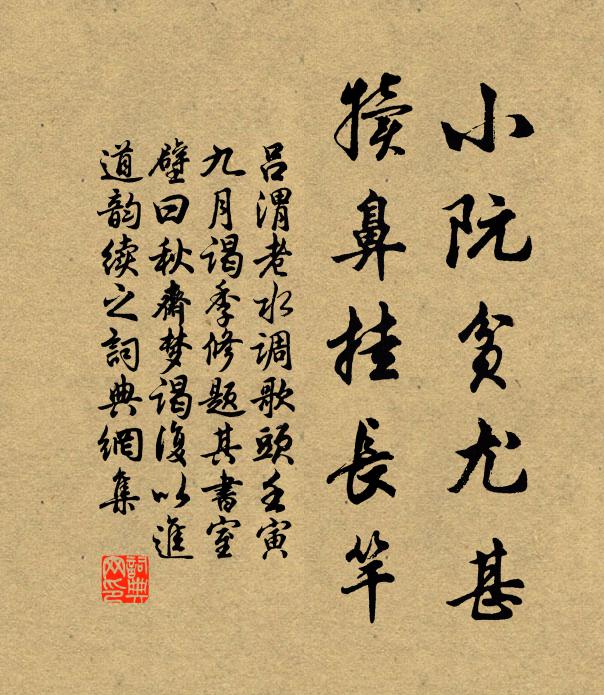 小阮贫尤甚
犊鼻挂长竿
吕渭老水调歌头壬寅
九月谒季修题其书室
壁曰秋斋梦谒复以进
道韵续之词典網集
詞典
网印